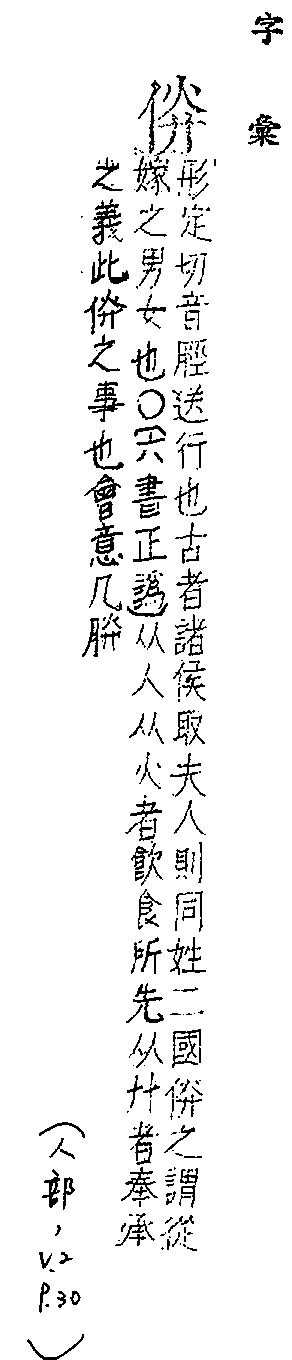 字彙
㑞
形定切音脛送行也古者諸侯取夫人則同姓二國㑞之謂從
嫁之男女也○(六書正譌)从人从火者飲食所先从廾者奉承
之義此㑞之事也會意几
(人部,V.2 P.30)